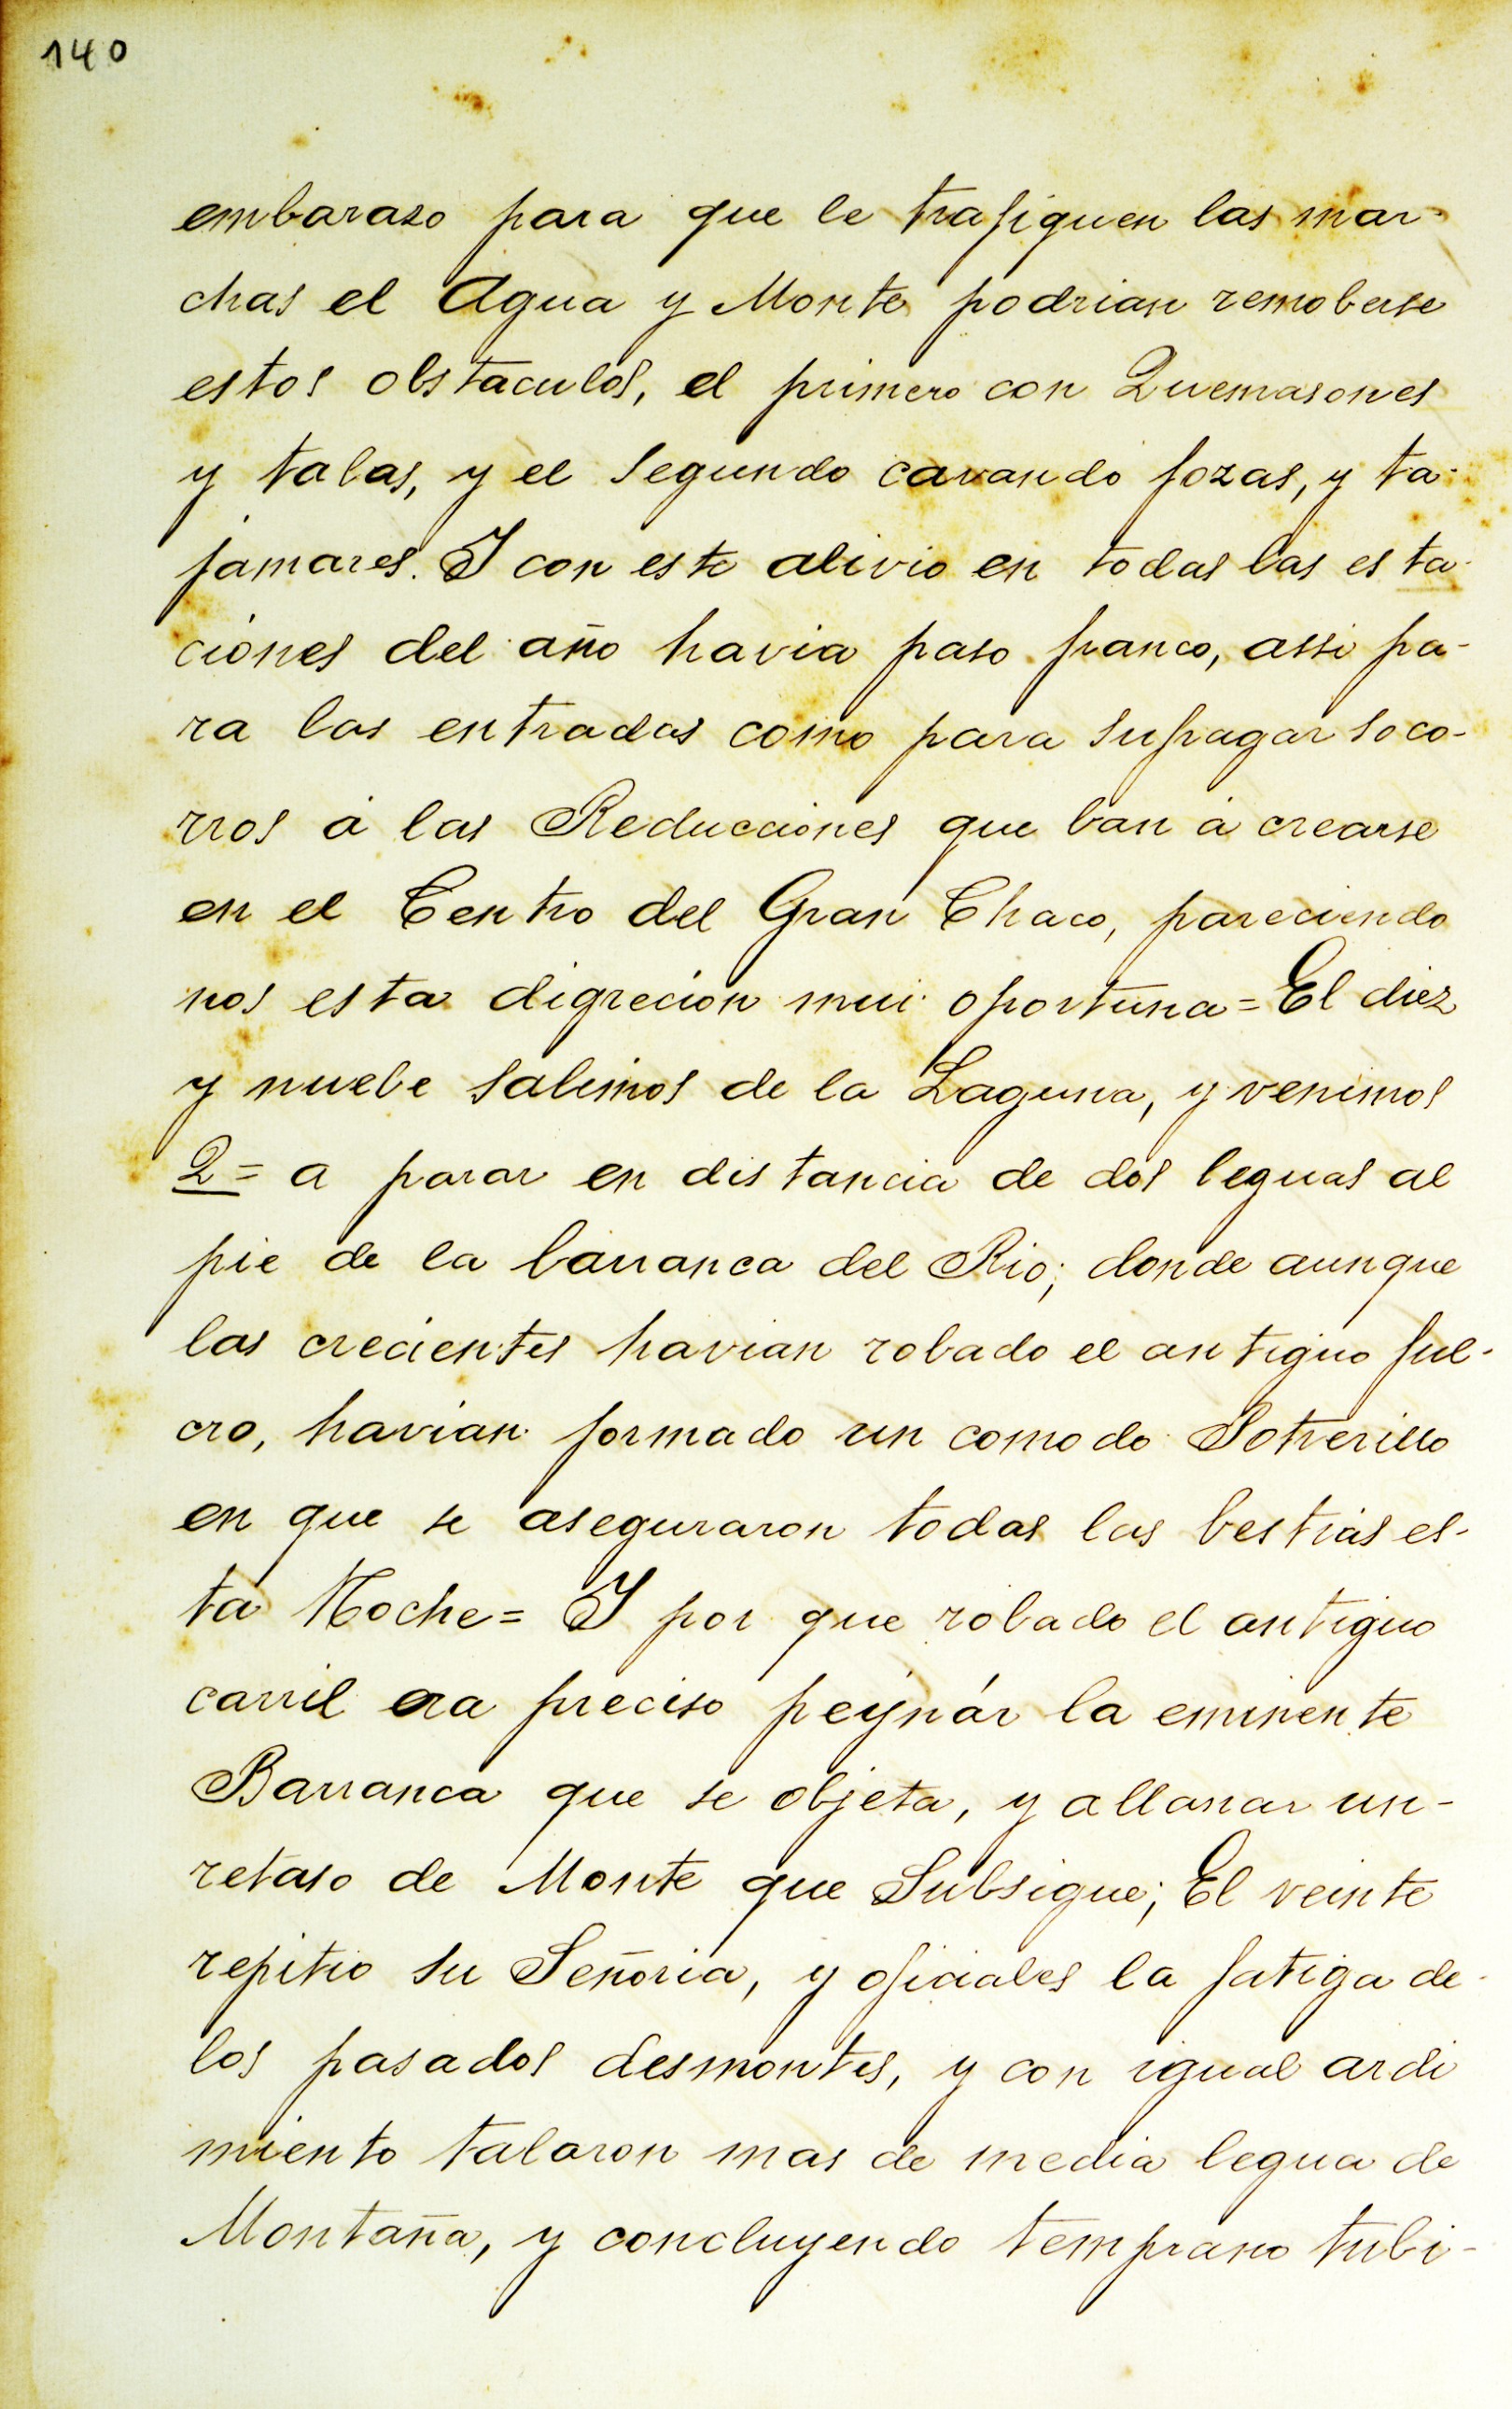 140
embaraso para que le trafiquen las mar-
chas el Agua y Monte podrian remoberse
estos obstaculos, el primero con Quemasones
y talas, y el segundo cavando fozas, y ta-
jamares. I con este alivio en todas las esta-
ciones del año havia paso franco, assi pa-
ra las entradas como para sufragar soco-
rros á las Reducciones que ban á crearse
en el Centro del Gran Chaco, pareciendo
nos esta digrecion mui oportuna = El diez
y nuebe salimos de la Laguna, y venimos
2 = a parar en distancia de dos leguas al
pie de la barranca del Rio; donde aunque
las crecientes havian robado el antiguo ful-
cro, havian formado un comodo Potrerillo
en que se aseguraron todas las bestias es-
ta Noche = I por que robado el antiguo
carril era preciso peynár la eminente
Barranca que se objeta, y allanar un-
retaso de Monte que Subsigue; El veinte
repitio su Señoria, y oficiales la fatiga de-
los pasados desmontes, y con igual ardi
miento talaron mas de media legua de
Montaña, y concluyendo temprano tubi-